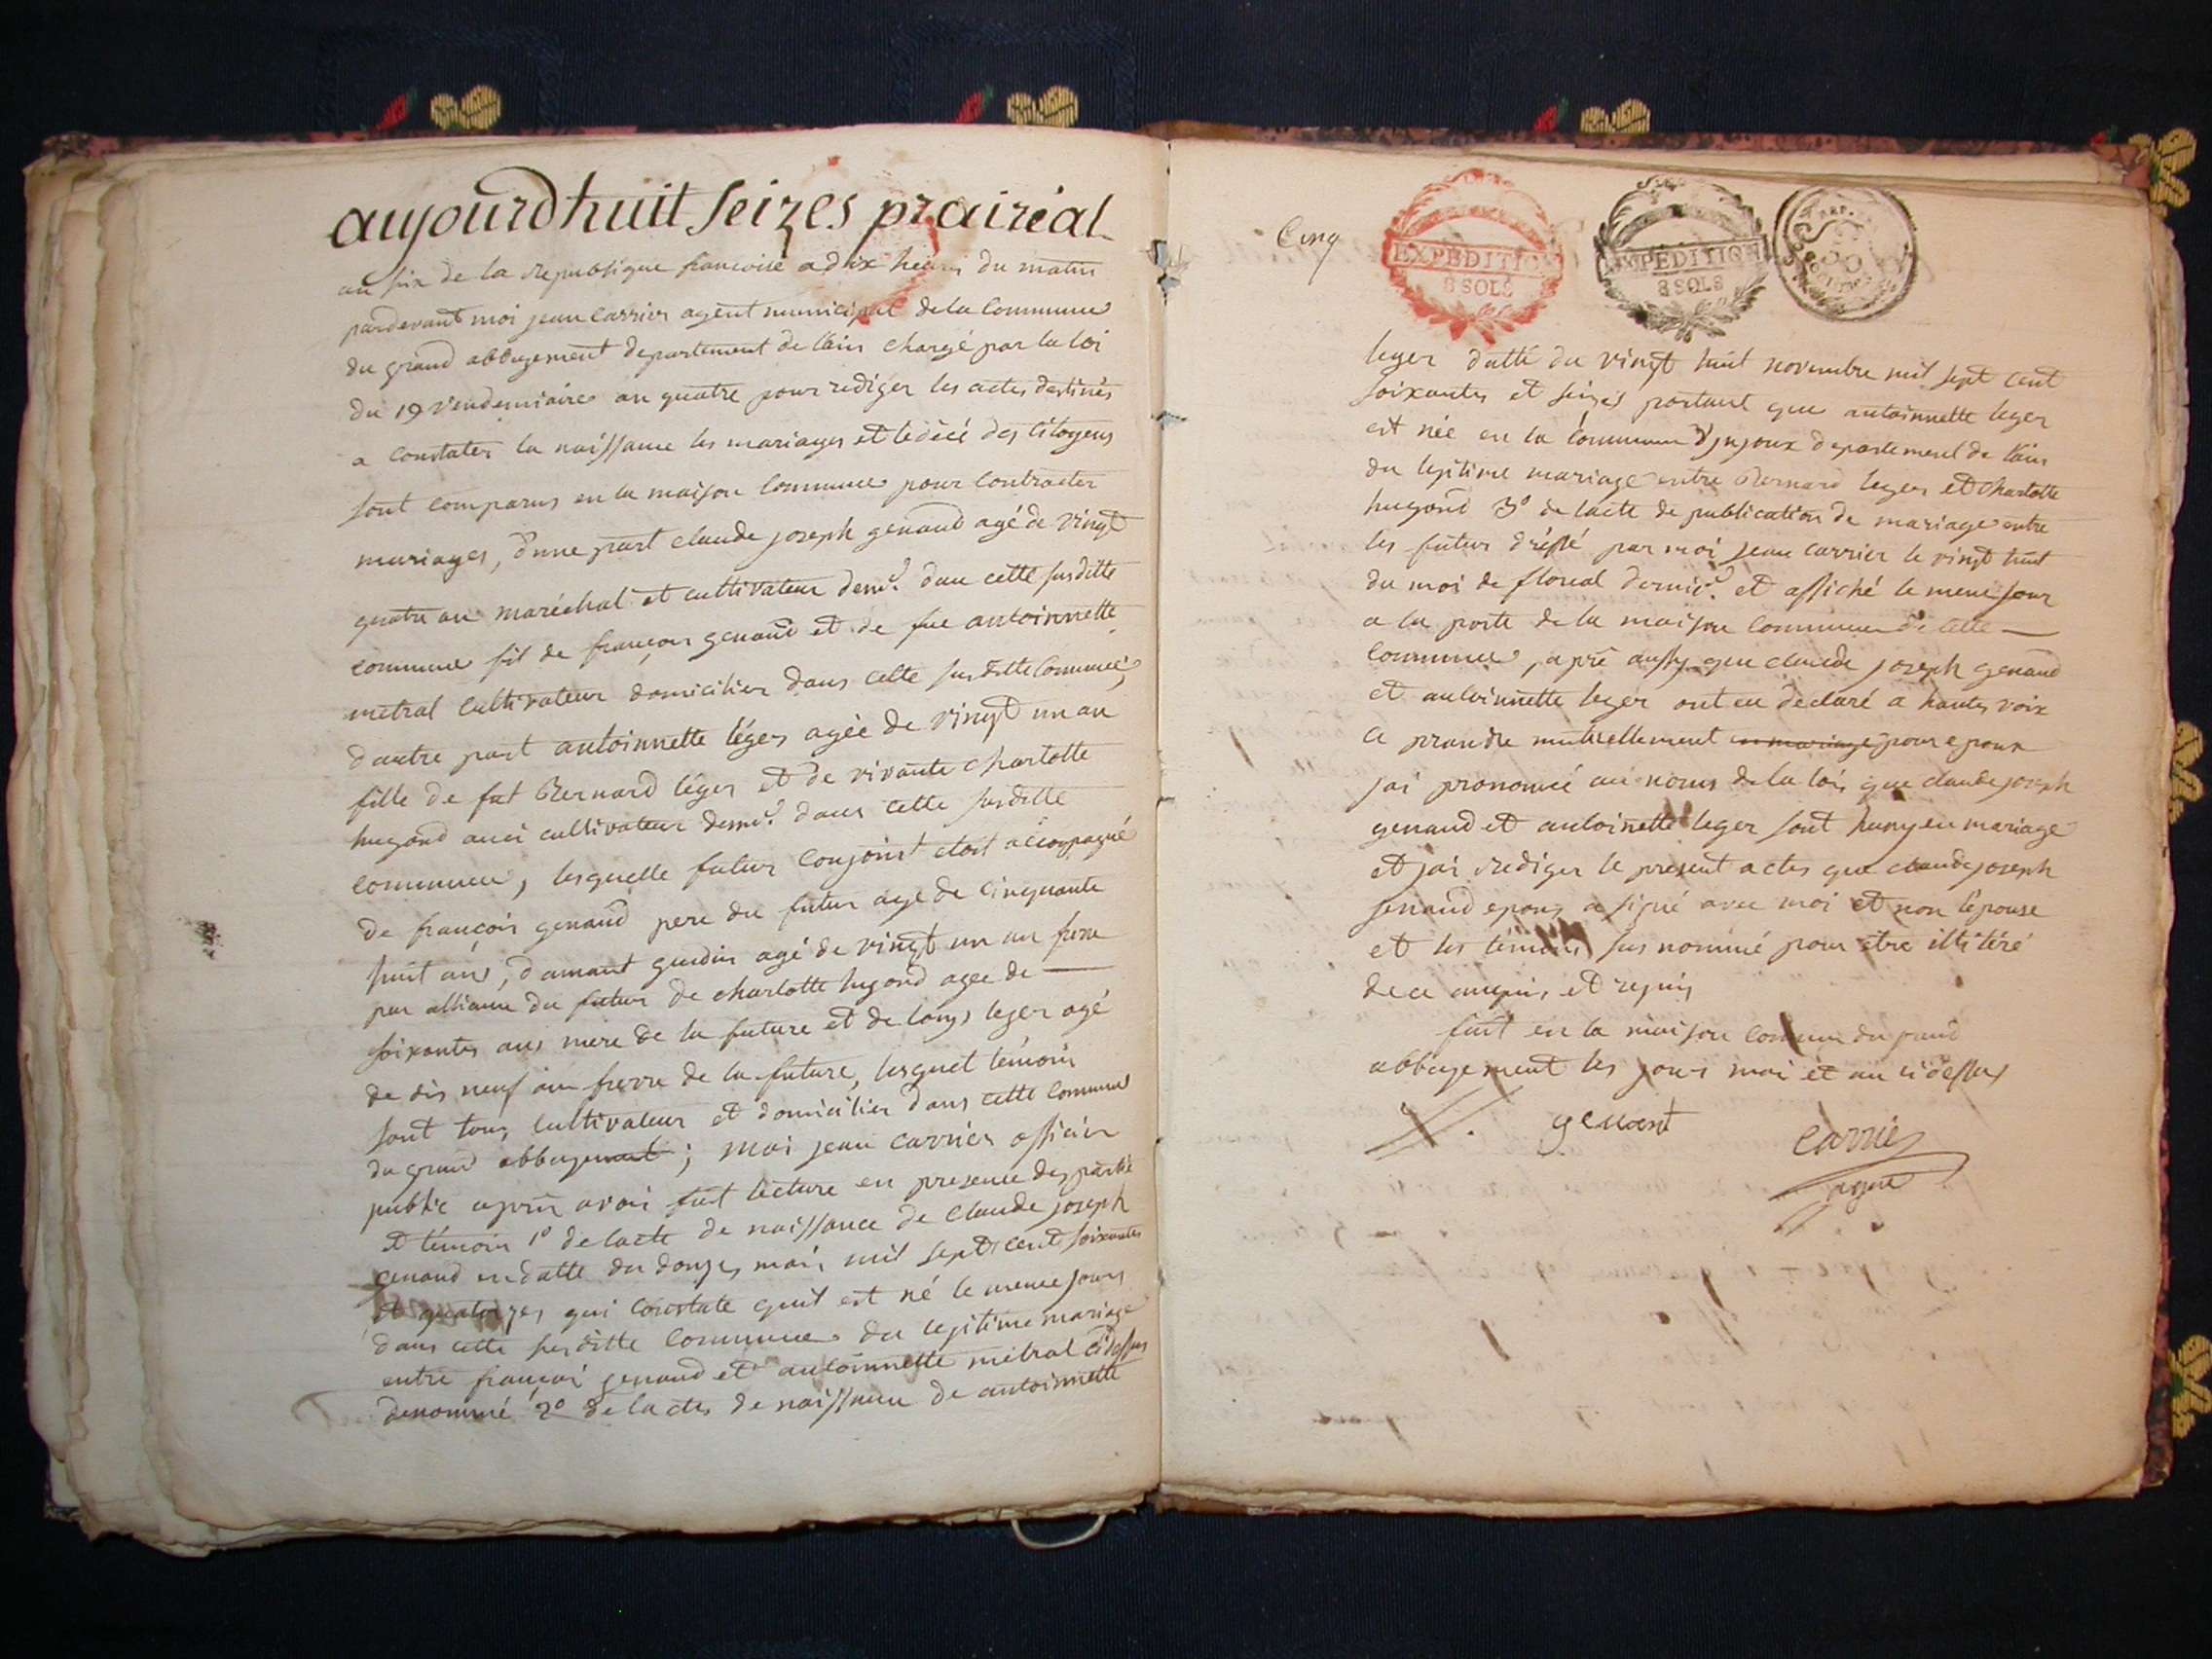 aujourdhuit seizes prairéal
an six de la republique francoise a dix heures du matin
pardevant moi jean carrier agent municipal de la Commune
du grand abbergement departement de lain chargé par la loi
du 19 vendemiaire an quatre pour rediger les actes destinés
a constater la naissance les mariages et le décé des citoyens
sont comparus en la maison Commune pour Contracter
mariages, d'une part claude joseph genand agé de vingt
quatre an maréchal et cultivateur demt. dan cette susditte
commune fil de françois genand et de fue antoinnette
metral cultivateur domicilier dans cette susditte Commune,
dautre part antoinnette léger agée de vingt un an
fille de fut Bernard léger et de vivante charlotte
hugond auci cultivateur demt. dans cette susditte
commune, lesquelle futur conjoint etoit accompagné
de françois genand pere du futur agé de cinquante
huit ans, damant gurdin agé de vingt un an frere
par alliance du futur de charlotte hugond agee de
soixantes ans mere de la future et de leger agé
de dix neuf an frerre de la future, lesquel témoin
sont tous cultivateur et domicilier dans cette commune
du grand abbergement; moi jean carrier officier
public apres avoir fait lecture en presence des partie
et témoin 1º de lacte de naissance de claude joseph
genand en datte du douzes mai mil sept cent soixantes
et quatorzes qui constate quil est né le meme jours
dans cette susditte commune du legitime mariage
entre françoi genand et antoinnette métral ci dessus
denommé 2º de lactes de naissance de antoinnette
Cinq
EXPEDITION
8 SOLS
EXPEDITION
8 SOLS
leger datté du vingt huit novembre mil sept cent
soixantes et seizes portant que antoinnette leger
est née en la commune d'jnjoux departement de lain
du legitime mariage entre Bernard leger et charlotte
hugond 3º de lacte de publication de mariage entre
les futur dréssé par moi jean carrier le vingt huit
du moi de floreal dernier et affiché le meme jour
a la porte de la maison commune de cette
commune, apré aussy que claude joseph genand
et antoinnette leger ont eu declaré a hautes voix
ce prandre mutuellement en mariage pour epoux
jai prononcé au noms de la loi, que claude joseph
genand et antoinette leger sont huny en mariage
et jai rediger le present actes que claude joseph
genand epoux a signé avec moi et non lepouse
et les témoins sus nommé pour etre illitéré
de ce enquis et requis
fait en la maison commune du grand
abbergement les jours moi et an ci dessus
genant
carrier
agent